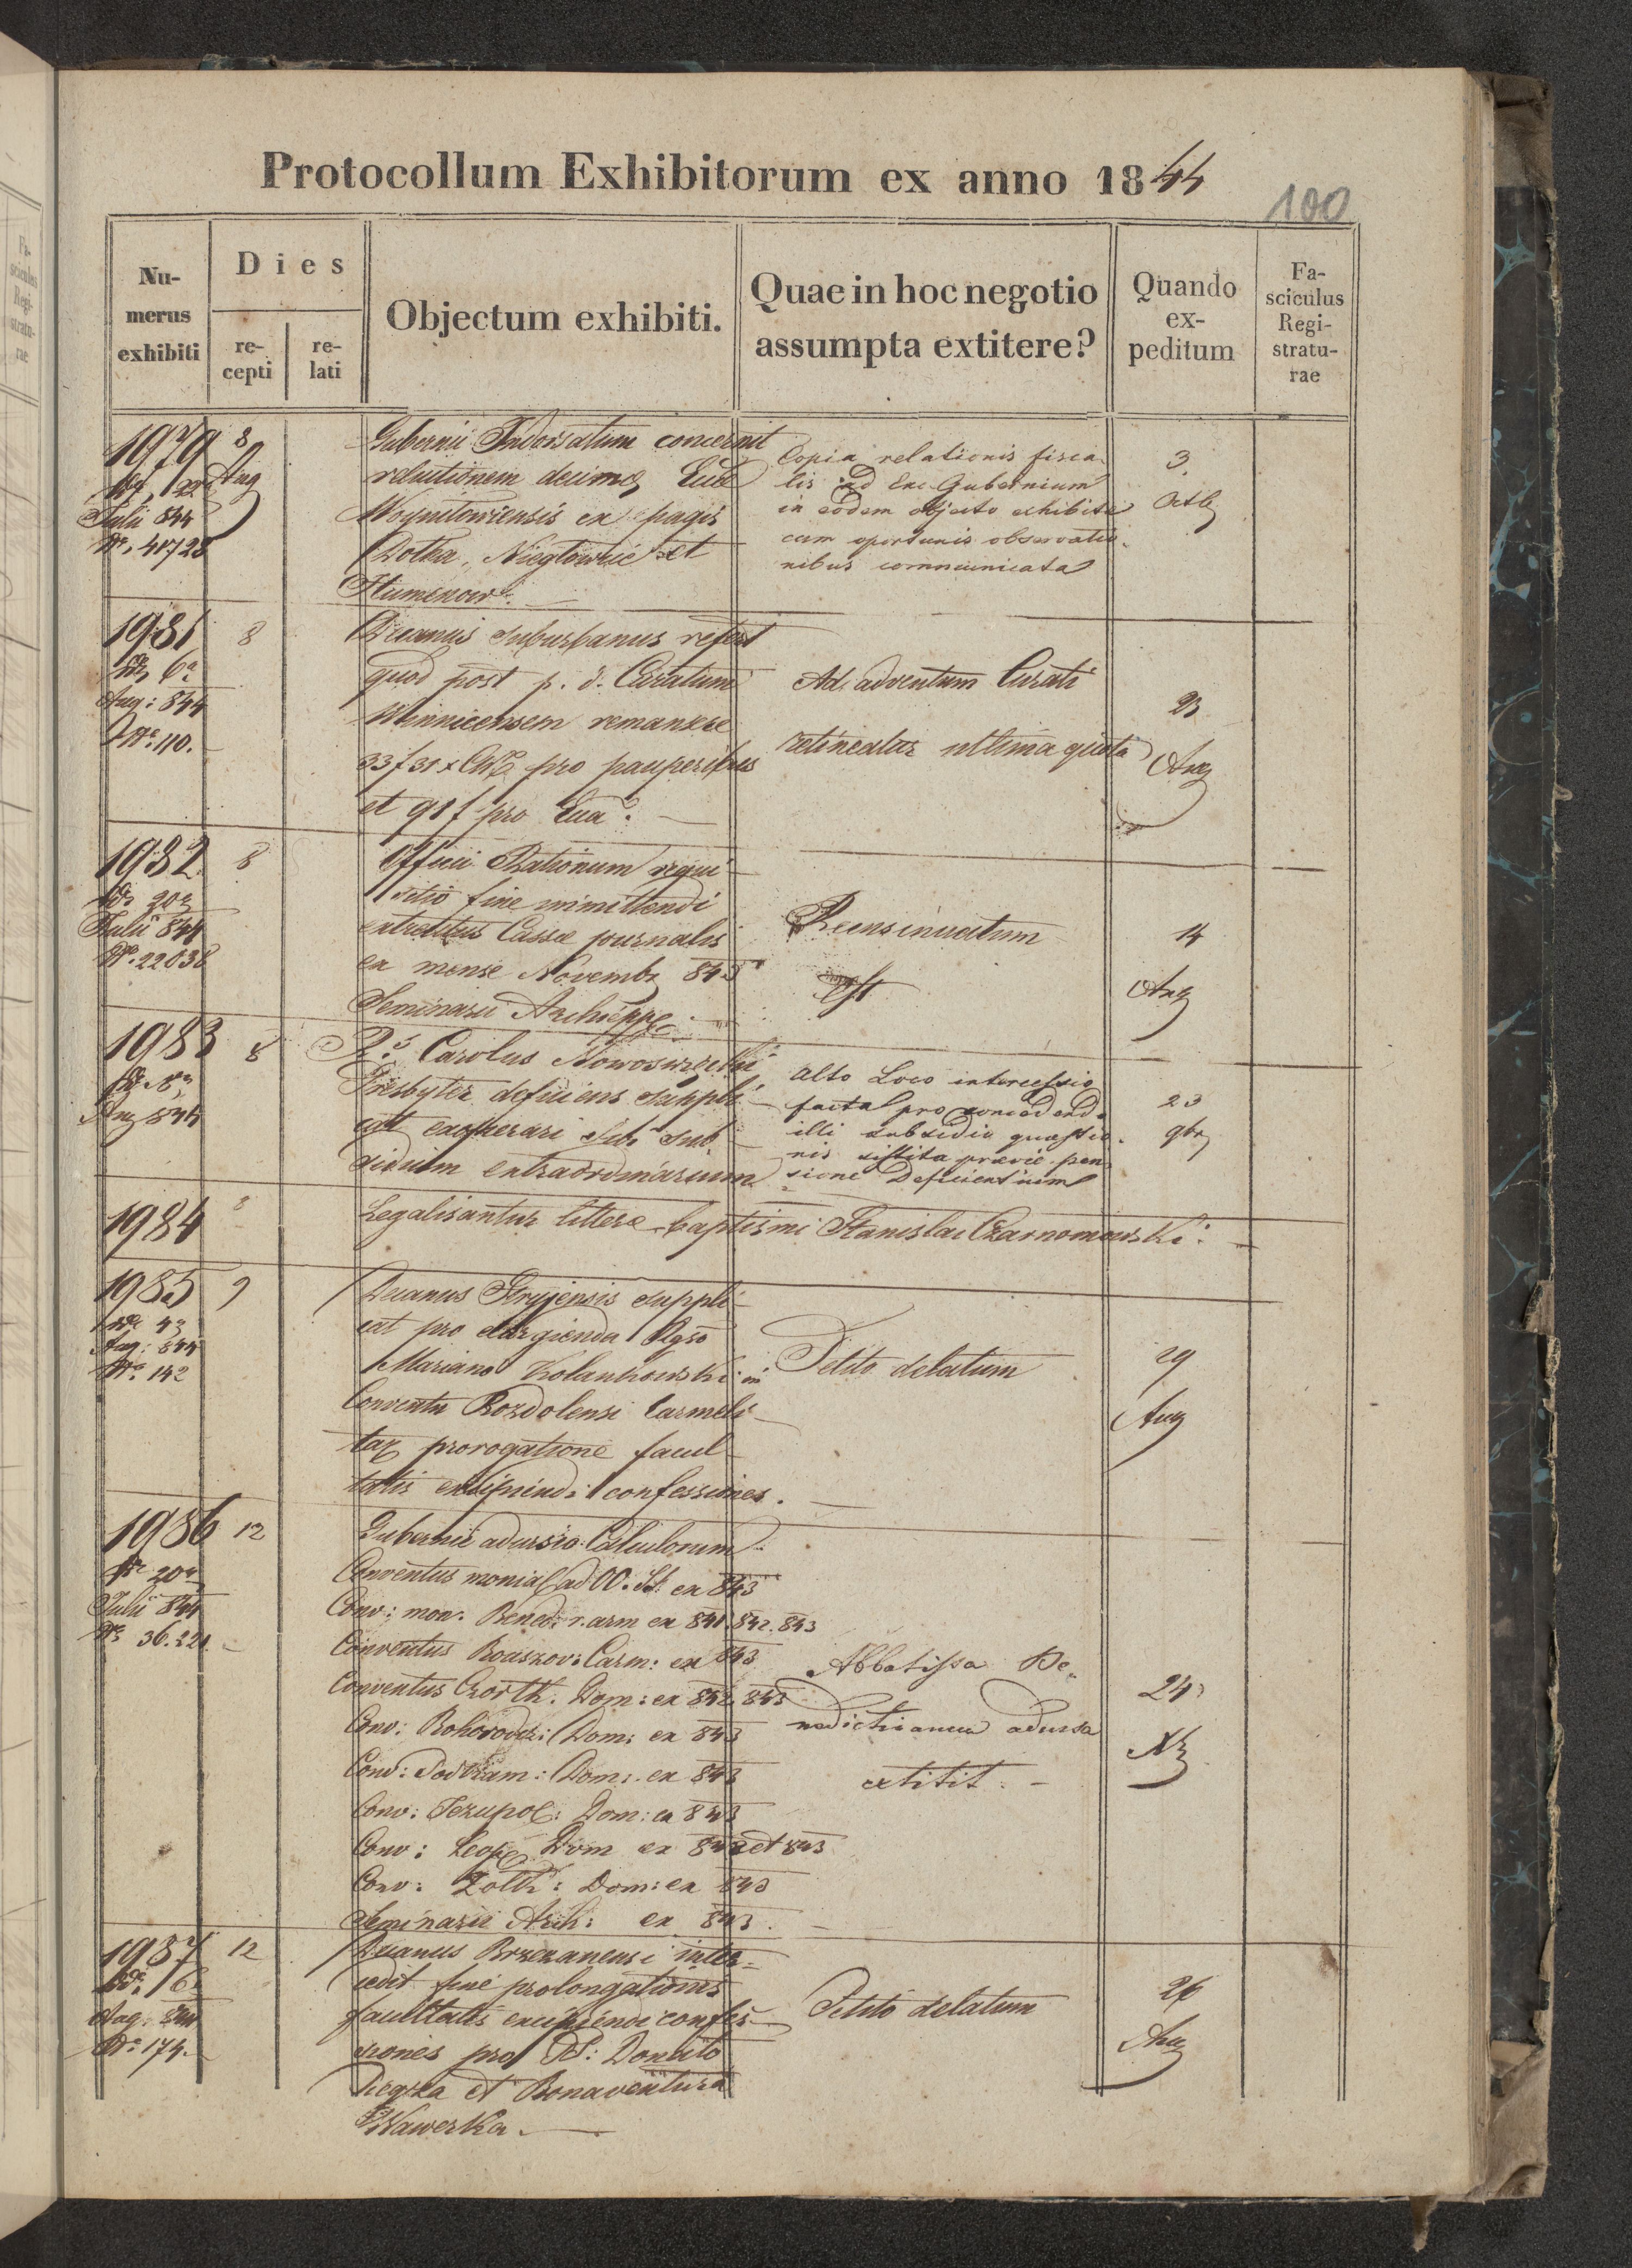 Protocollum Exhibitorum ex anno 1844
100
Numerus exhibiti
Dies
recepti
relati
Objectum exhibiti.
Quae in hoc negotio assumpta extitere?
Quando expeditum
Fasciculus Registraturae
1979 8 Aug
Julii 844
Nr. 40728
Gubernii Indorsatum concernit
relutionem decimæ Eccl
Woynilowiensis ex pagis
Dolha, Niegtowce et
Copia relationis fisca-
lis ad Exc. Gubernium
in eodem objecto exhibita
cum oportunis observatio-
nibus communicata
3
Octb
1981 8
Aug: 844
Nr. 110.
Decanus Suburbanus refert
quod post p. d. Curatum
Winnicensem remansere
33 f 31 x pro pauperibus
et 91 f pro Ecca.
Ad adventum Curati
retineatur ultima quota
23
Aug
1982 8
Julii 844
Nr. 22038
Officii Rationum requi-
sitio fine immittendi
extractus Cassæ journalis
ex mense Novembr 843
Seminarii Archieppl.
Reinsinuatum
est
14
Aug
1983 8
Aug 844
Rs Carolus Nowosurzecki
Presbyter deficiens suppli-
cat exoperari sibi sub-
sidium extraordinarium
Alto Loco intercessio
facta pro concedend
illi subsidio quæstio-
nis sistita prævie pen
sione Deficientium
23
9br
1984 8
Legalisantur litteræ baptismi Stanislai Czarnomowski.
1985 9
Aug: 844
Nr. 142
Decanus Stryjensis suppli-
cat pro elargienda Rgso
Mariano Kolankowski in
Conventu Rozdolensi Carmeli-
tar prorogatione facul-
tatis excipiendi confessiones.
Petito delatum
29
Aug
1986 12
Julii 844
Nr. 36.221.
Gubernii adursio Calculorum
Conventus monial ad OO. SS. ex 843
Conv: mon. Bened: r. arm ex 841. 842. 843
Conventus Carm: ex 843
Conventus Czortk. Dom: ex 842 843
Conv: Bohorodcz: Dom: ex 843
Conv: Podkam: Dom: ex 843
Conv: Jezupol: Dom: ex 843
Conv: Leop Dom ex 842 et 843
Conv: Zolk: Dom: ex 843
Seminarii Arch: ex 843.
Abbatissa Be-
nedictianea adursa
extitit.
24
1987 12
Aug: 844
Nr. 174.
Decanus Brzezanensi inter-
cedit fine prolongationis
facultatis excipiendi confes-
siones pro PP: Donato
et Bonaventura
Wawerka.
Petito delatum
26
Aug